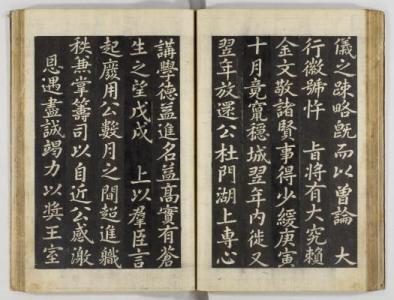 儀之疎略旣而以曾論 大
行徽號忤 旨將有大究賴
金文敬諸賢事得少緩庚寅
十月竟竄穩城翌年內徙又
翌年放還公杜門湖上專心
講學德益進名益高實有蒼
生之望戊戌 上以羣臣言
起廢用公數月之間超進職
秩兼掌籌司以自近公感激
恩遇盡誠竭力以奬王室